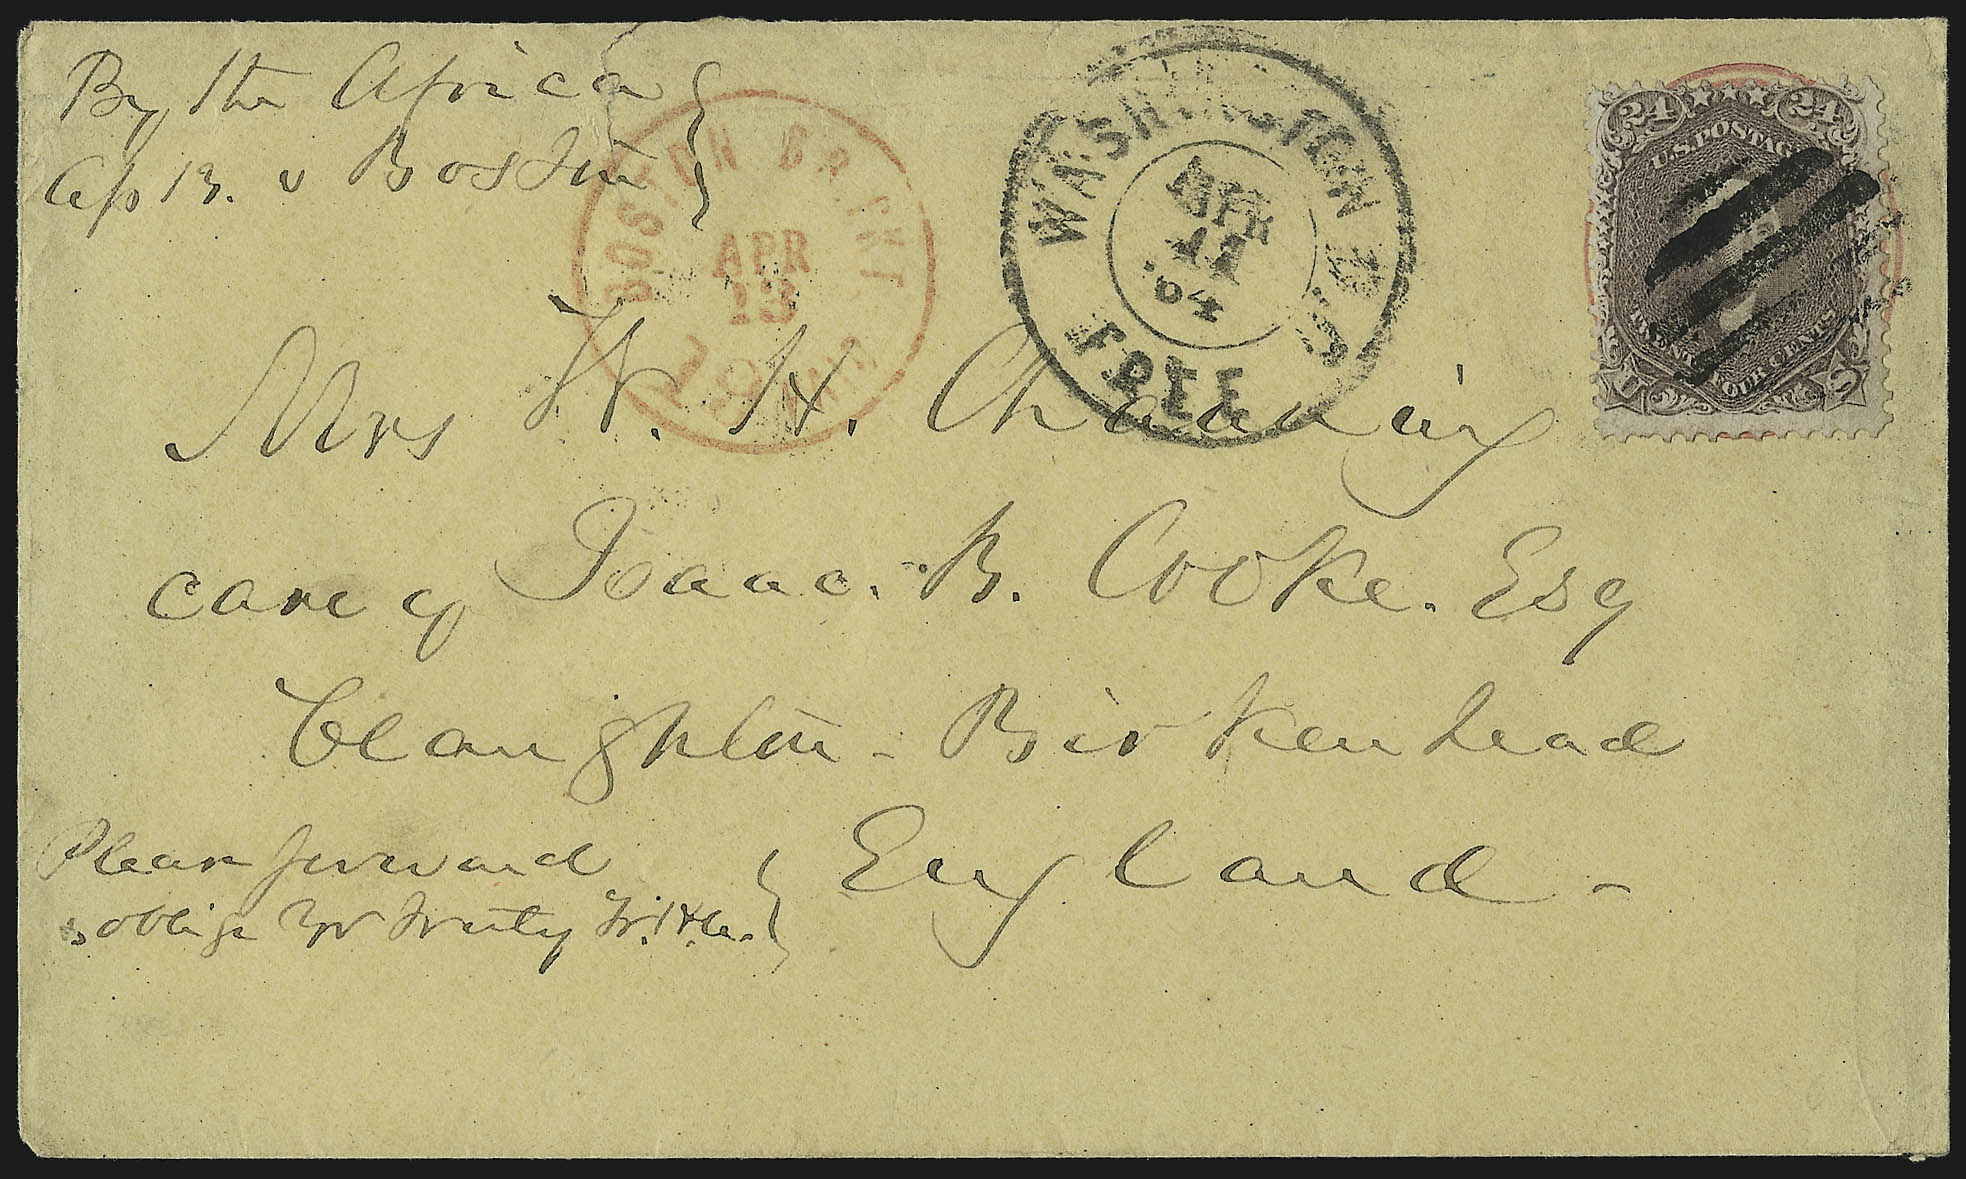 By the Africa
Ap 13. v Boston
BOSTON BR. PKT
APR
13
PAID
WASHINGTON D.C.
APR
11
'64
FREE
24 24
U.S. POSTAGE
TWENTY FOUR CENTS
U S
Mrs W. H. Channing
care of Isaac. B. Cooke. Esq
Claughton - Birkenhead
England -
Please forward
& oblige Yr truly W.H.C.